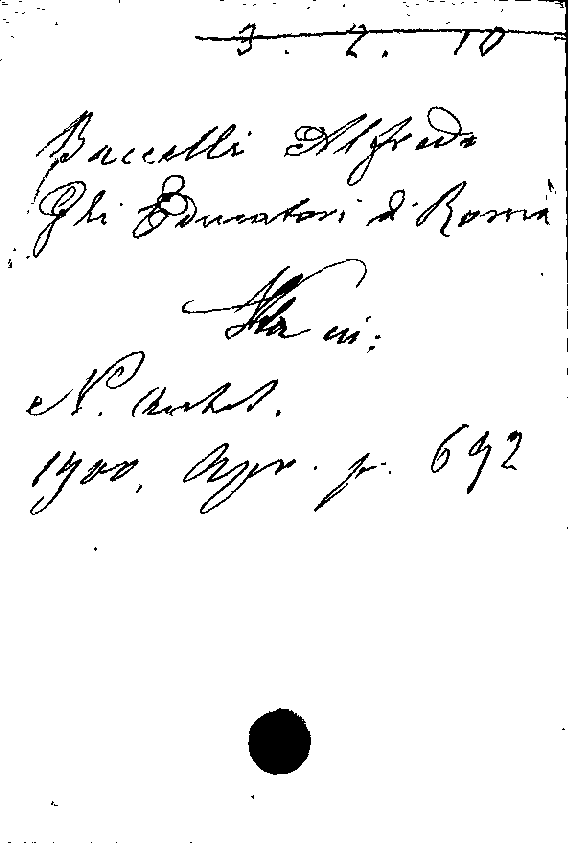 3. 2. 10
Baccelli Alfredo
Gli Educatori di Roma
in:
N. Antol.
1900, Apr. p. 692